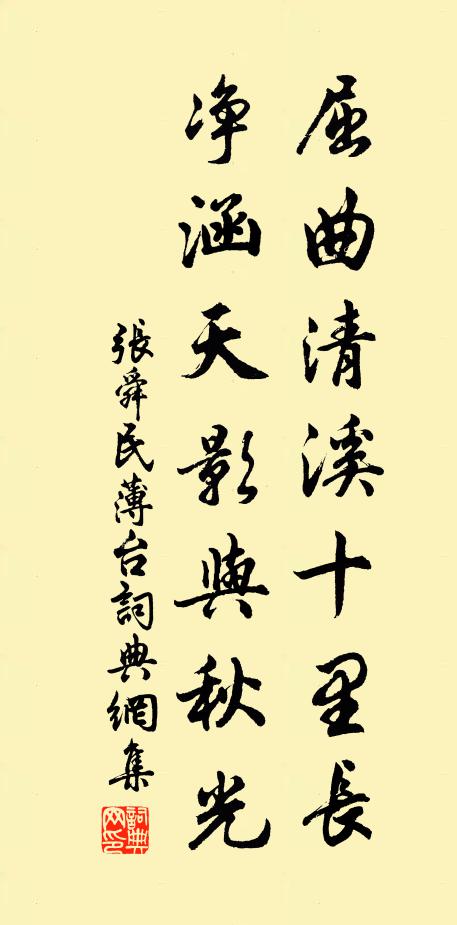 屈曲清溪十里長
净涵天影與秋光
張舜民薄台詞典網集
詞典网印